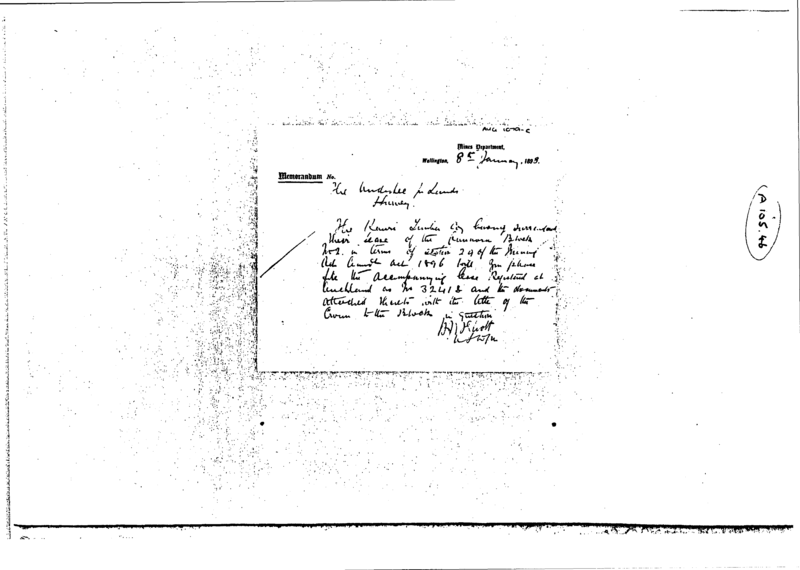 Mines Department,
Wellington, 8th January, 1898.
Memorandum No.
The Undersec for Lands
Survey
The Kauri Timber Coy having surrendered
their lease of the Block
No 2. in terms of section 24 of the Mining
Act Amdt Act 1896 will you please
file the accompanying lease Registered at
Auckland as No 32418 and the documents
attached thereto with the title of the
Crown to the Block in question
A 105.46